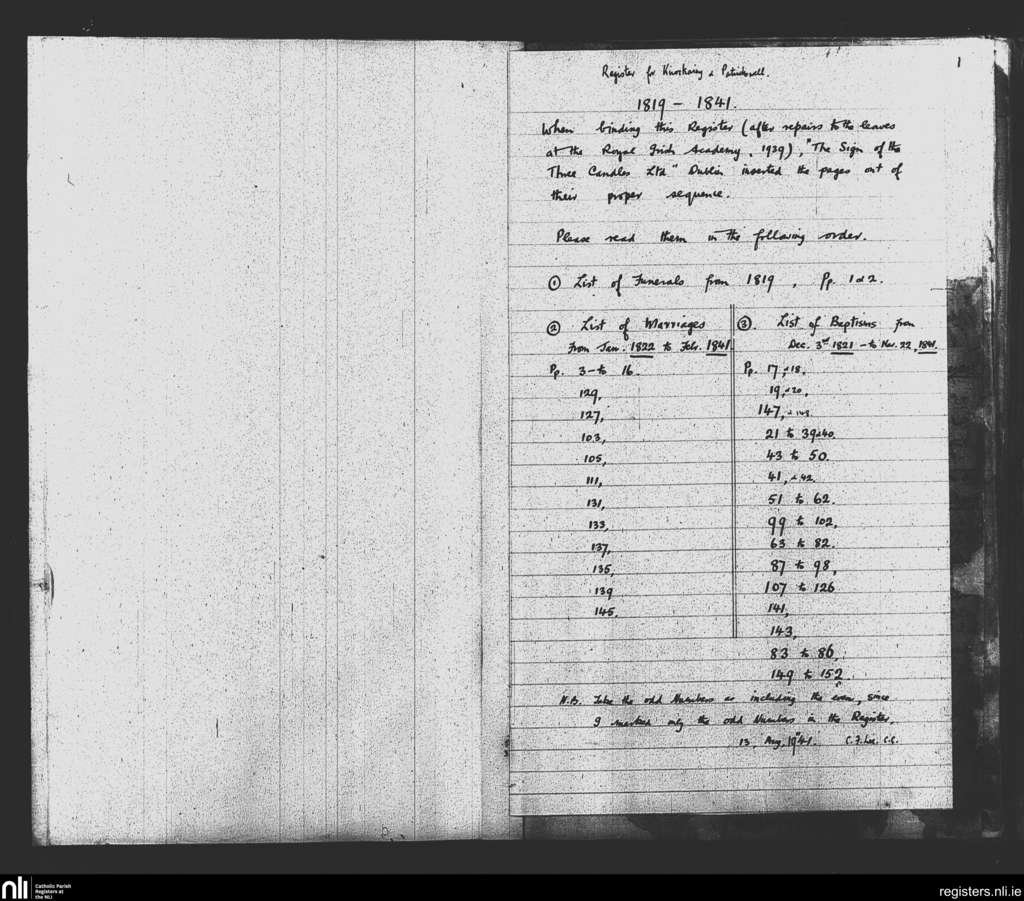 1
Register for Knockainy & Patrickswell.
1819 - 1841.
When binding this Register (after repairs to the leaves
at the Royal Irish Academy, 1939), "The Sign of the
Three Candles Ltd" Dublin inserted the pages out of
their proper sequence.
Please read them in the following order.
① List of Funerals from 1819, Pp. 1 & 2.
② List of Marriages
from Jan. 1822 to Febr. 1841.
Pp. 3 - to 16.
129,
127,
103,
105,
111,
131,
133,
137,
135,
139
145.
③. List of Baptisms from
Dec. 3rd 1821 - to Nov. 22, 1841.
Pp. 17, & 18,
19, & 20,
147, & 148
21 to 39 & 40.
43 to 50.
41, & 42.
51 to 62.
99 to 102,
63 to 82.
87 to 98,
107 to 126
141,
143,
83 to 86,
149 to 152
N.B. Take the odd Numbers as including the even, since
I marked only the odd Numbers in the Register.
13. Aug. 1941. C.F. Lee. C.C.
nli
Catholic Parish
Registers at
the NLI
registers.nli.ie